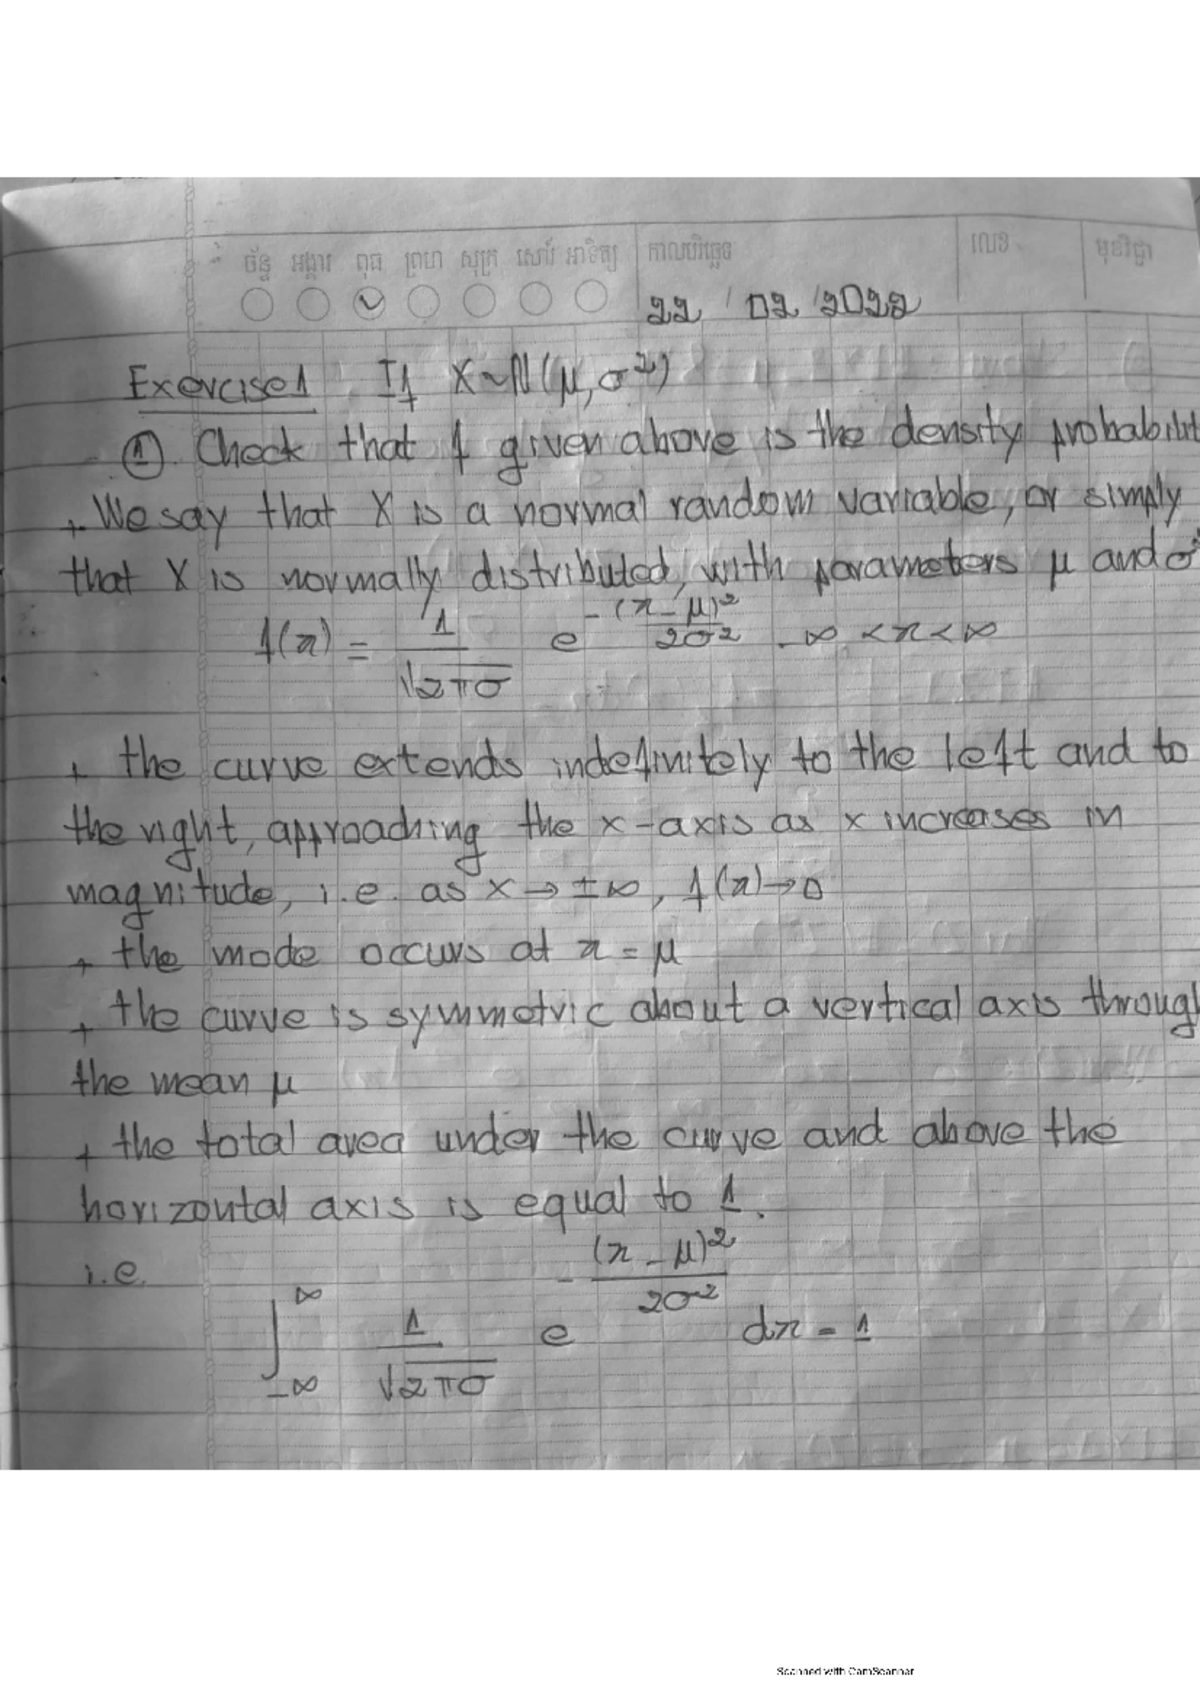 ច័ន្ទ អង្គារ ពុធ ព្រហ សុក្រ សៅរ៍ អាទិត្យ កាលបរិច្ឆេទ លេខ មុខវិជ្ជា
22 / 02 / 2022
Exercise 1 If X~N(μ, σ²)
① Check that f given above is the density probabilit
+ We say that X is a normal random variable, or simply
that X is normally distributed, with parameters μ and σ²
f(x) = 1/√2πσ e^-(x-μ)²/2σ² -∞ < x < ∞
+ the curve extends indefinitely to the left and to
the right, approaching the x-axis as x increases in
magnitude, i.e. as x → ±∞, f(x) → 0
+ the mode occurs at x = μ
+ the curve is symmetric about a vertical axis through
the mean μ
+ the total area under the curve and above the
horizontal axis is equal to 1.
i.e.
∫_-∞^∞ 1/√2πσ e^-(x-μ)²/2σ² dx = 1
Scanned with CamScanner